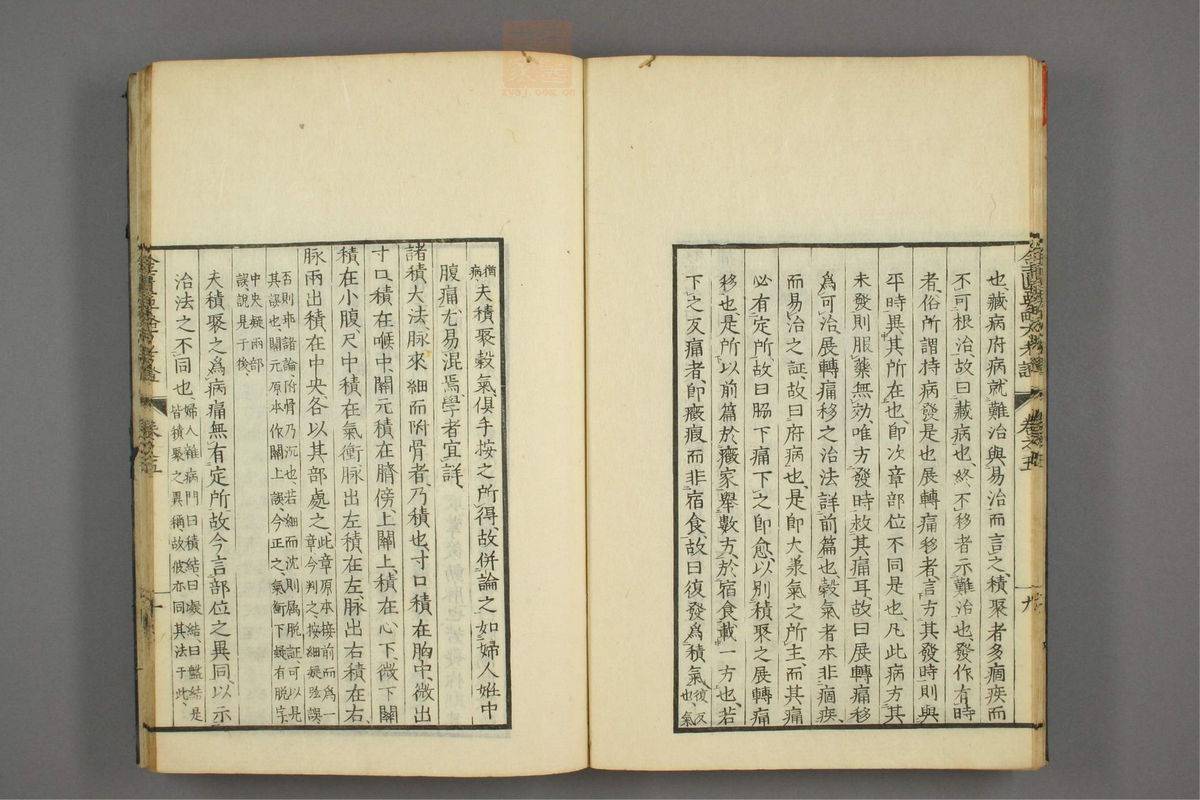 也藏病府病就難治與易治而言之積聚者多痼疾而
不可根治故曰藏病也終不移者示難治也發作有時
者俗所謂持病發是也展轉痛移者言方其發時則與
平時異其所在也即次章部位不同是也凡此病方其
未發則服藥無効唯方發時救其痛耳故曰展轉痛移
爲可治展轉痛移之治法詳前篇也穀氣者本非痼疾
而易治之証故曰府病也是即大承氣之所主而其痛
必有定所故曰脇下痛下之即愈以別積聚之展轉痛
移也是所以前篇於癥家舉數方於宿食載一方也若
下之反痛者即癥瘕而非宿食故曰復發爲積氣復反也氣
猶病夫積聚穀氣俱手按之所得故併論之如婦人姙中
腹痛尤易混焉學者宜詳
諸積大法脉來細而附骨者乃積也寸口積在胸中微出
寸口積在喉中關元積在臍傍上關上積在心下微下關
積在小腹尺中積在氣衝脉出左積在左脉出右積在右
脉兩出積在中央各以其部處之此章原本接前而爲一章今判之按細疑弦誤
否則乖諸論附骨乃沉也若細而沈則属脱証可以見
其誤也關元原本作關上誤今正之氣衝下疑有脱字
中央疑兩部
誤說見于後
夫積聚之爲病痛無有定所故今言部位之異同以示
治法之不同也婦人雜病門曰積結曰凝結曰盤結是皆積聚之異稱故彼亦同其法于此
卷之五
九
卷之五
十